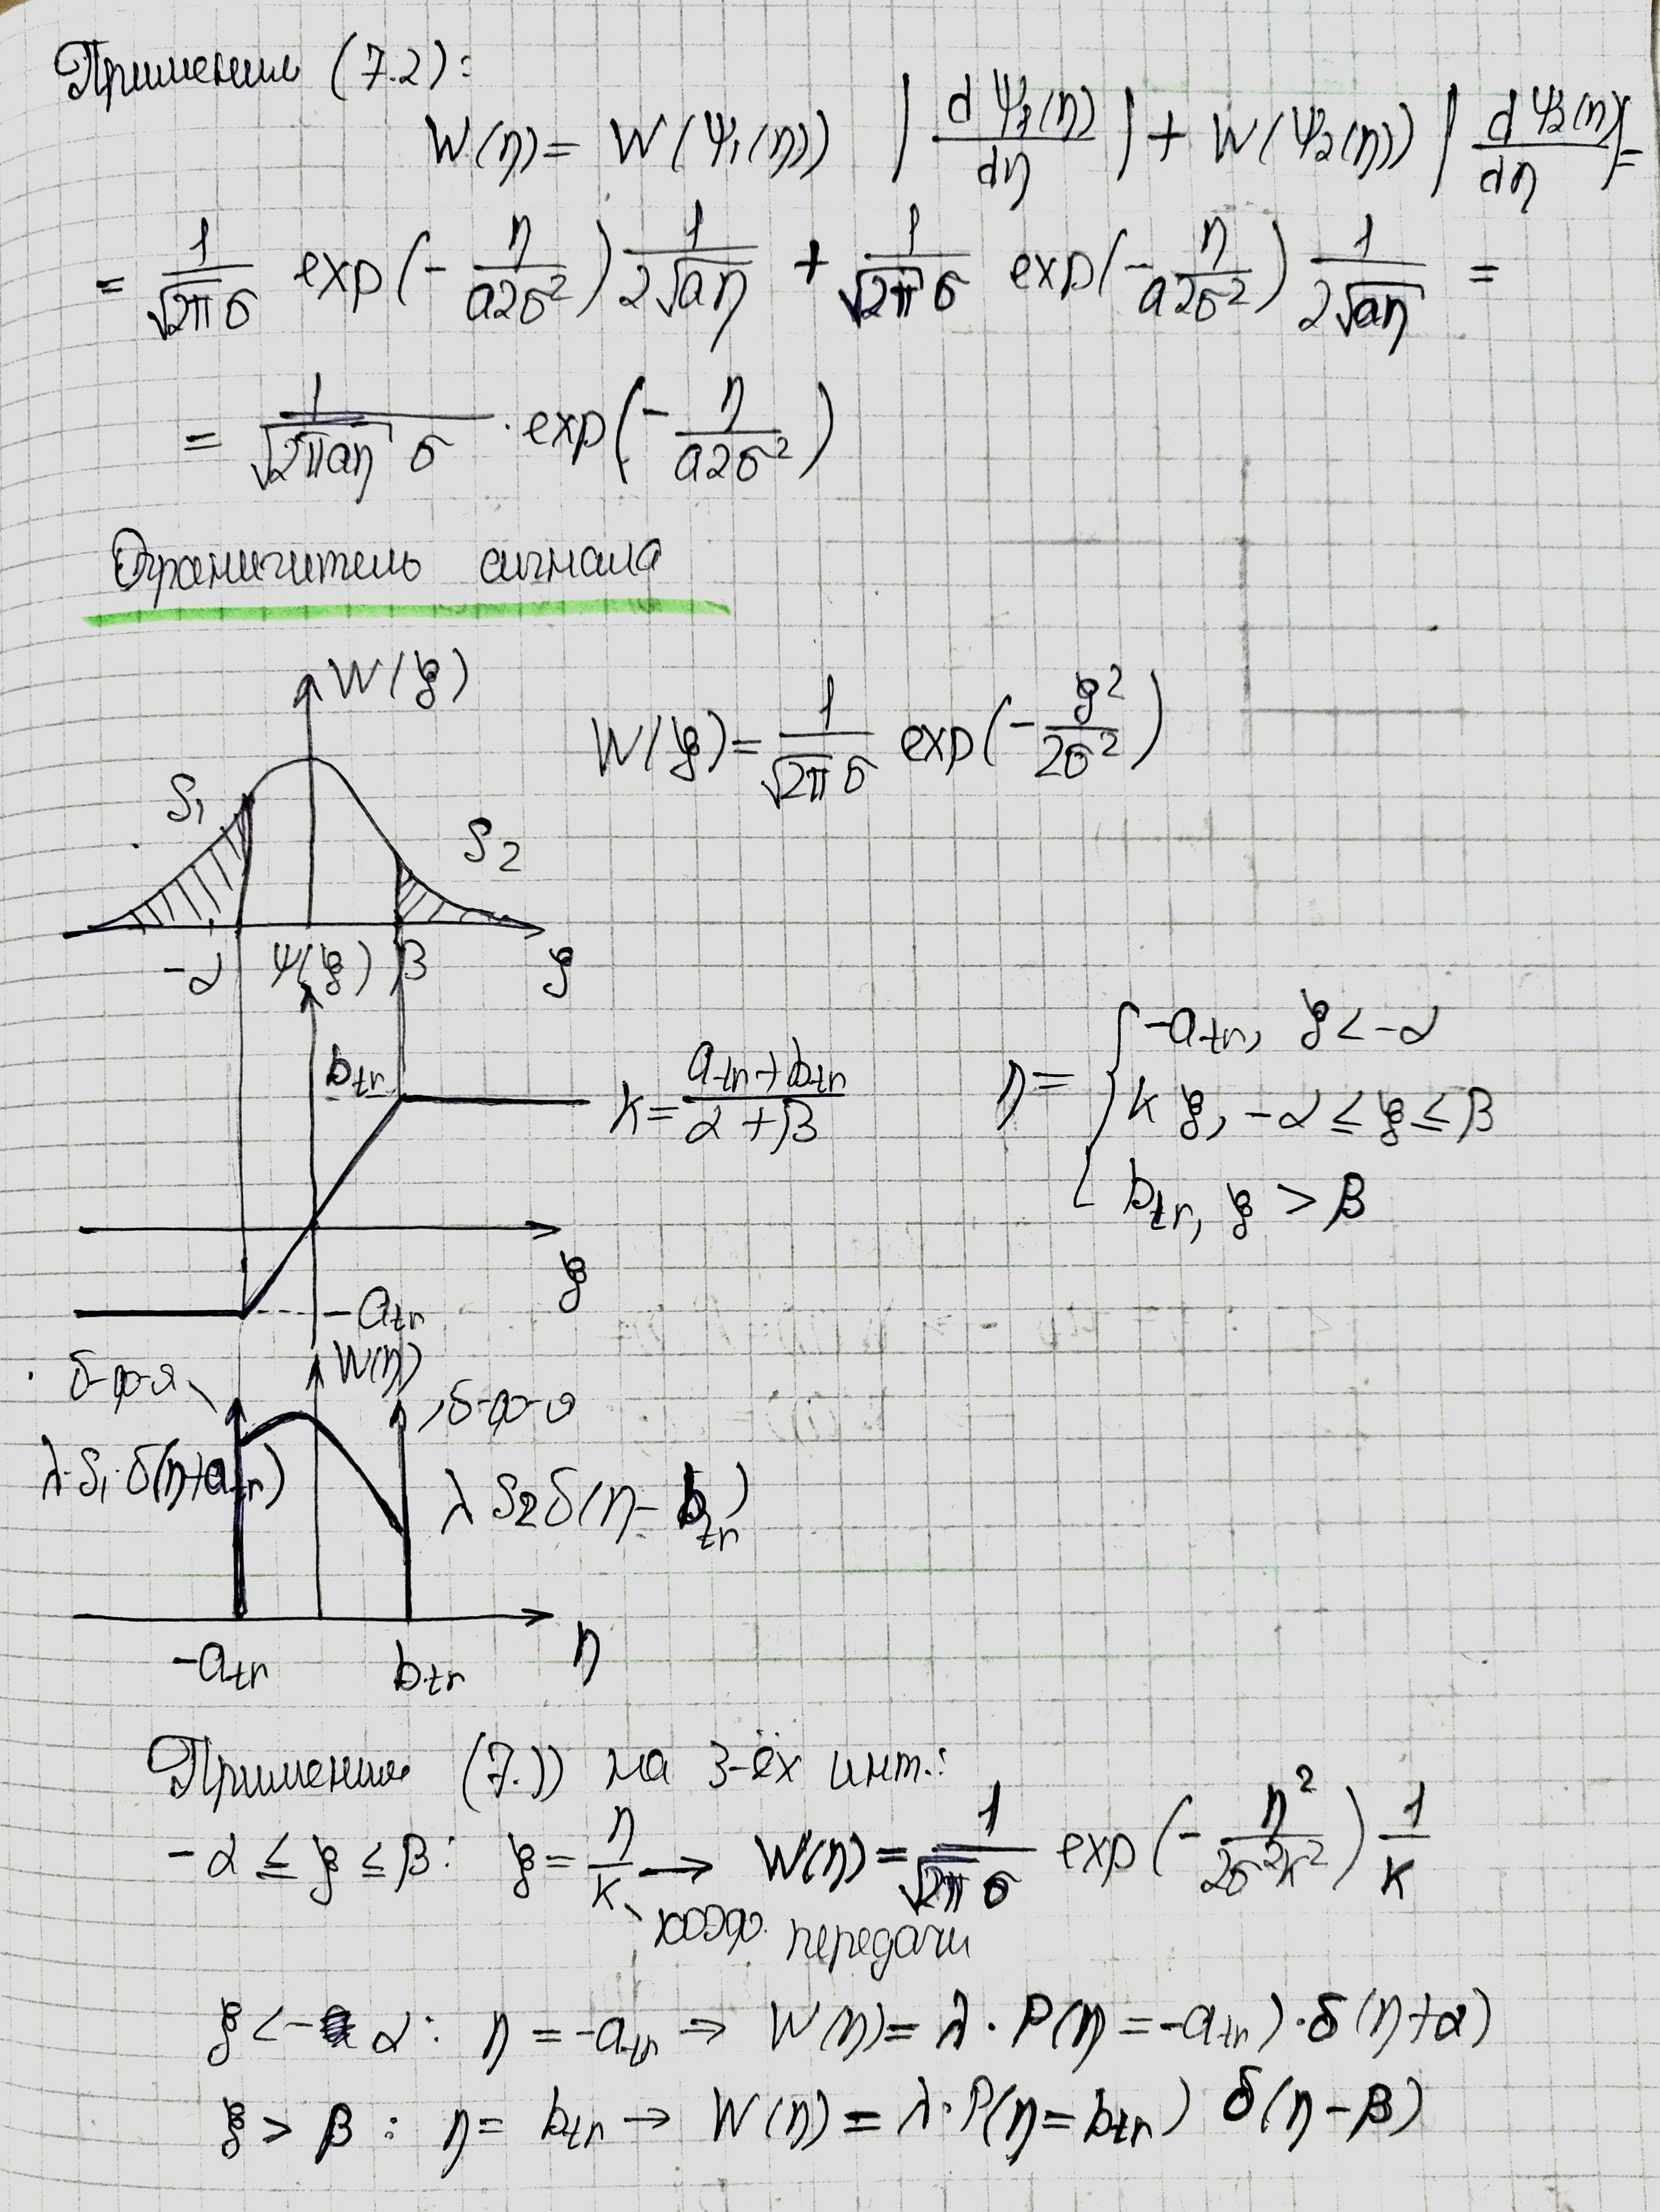 Применим (7.2):
W(η) = W(ψ₁(η)) |dψ₁(η)/dη| + W(ψ₂(η)) |dψ₂(η)/dη| =
= 1/(√2π σ) exp(- η/(a2σ²)) 1/(2√aη) + 1/(√2π σ) exp(- η/(a2σ²)) 1/(2√aη) =
= 1/(√2πaη σ) · exp(- η/(a2σ²))
Ограничитель сигнала
W(ξ)
W(ξ) = 1/(√2π σ) exp(- ξ²/(2σ²))
S₁
S₂
-α ψ(ξ) β ξ
b_tr
k = (a_tr + b_tr)/(α + β)
η = { -a_tr, ξ < -α
kξ, -α ≤ ξ ≤ β
b_tr, ξ > β
ξ
-a_tr
W(η)
δ-ф-я
δ-ф-я
λ·S₁·δ(η+a_tr)
λ S₂ δ(η - b_tr)
-a_tr b_tr η
Применим (7.1) на 3-ёх инт.:
-α ≤ ξ ≤ β: ξ = η/k → W(η) = 1/(√2π σ) exp(- η²/(2σ²k²)) 1/k
коэф. передачи
ξ < -α: η = -a_tr → W(η) = λ · P(η = -a_tr) · δ(η+α)
ξ > β: η = b_tr → W(η) = λ · P(η = b_tr) δ(η - β)